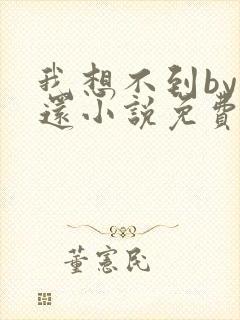 我想不到by
還小説免費
董憲民